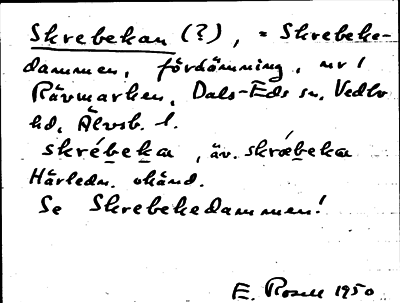 Skrebekan (?), = Skrebeke-
dammen, fördämning, nr 1
Rävmarken, Dals-Eds sn. Vedbo
hd, Älvsb. l.
skrébeka, äv. skrǽbeka
Härledn. okänd.
Se Skrebekedammen!
E. Rosell 1950